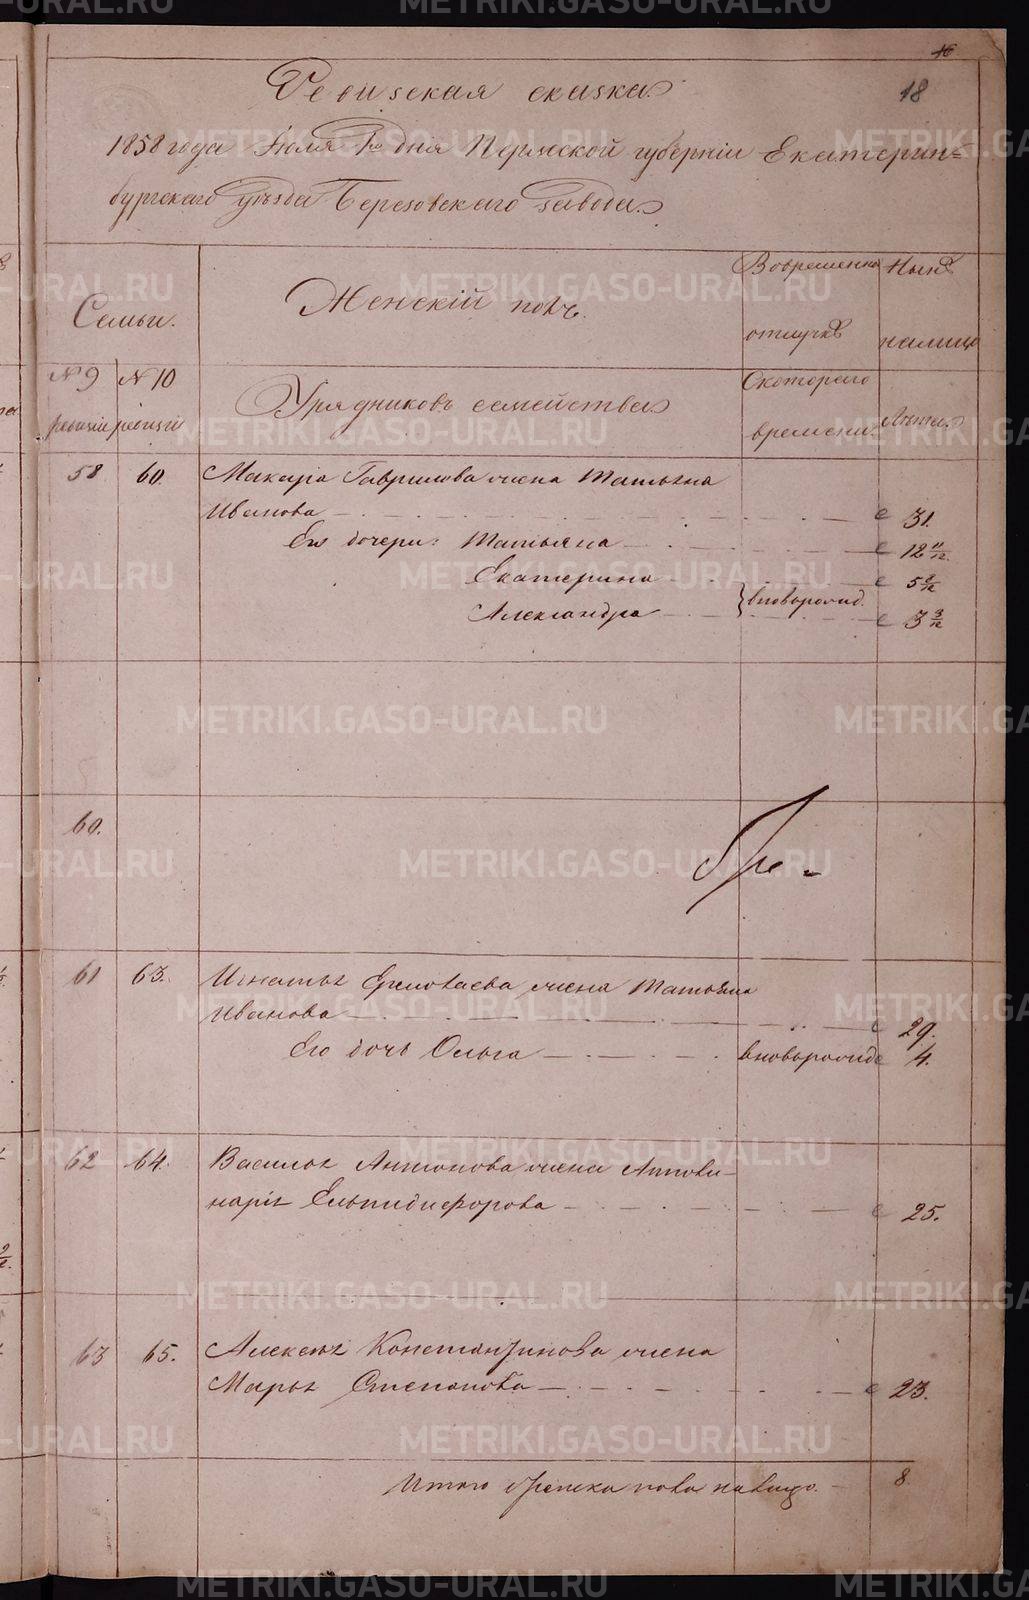 16
18
Ревизская сказка
1858 года Июля 1го дня Пермской губерніи Екатерин-
бургскаго уѣзда Березовскаго завода
Семьи.
Женскій полъ.
Вовременной отлучкѣ
Нынѣ на лицо
№ 9 ревизіи
№ 10 ревизіи
Урядниковъ семейства
Скотораго времени.
Лѣта.
58 60. Макара Гаврилова жена Татьяна
Иванова е 31.
Его дочери: Татьяна е 12 11/12
Екатерина е 5
Александра вноворожд. е 3 3/12
60.
61 63. Игнатья Ермолаева жена Татьяна
Иванова е 29.
Его дочь Ольга вноворожд е 4.
62 64. Василья Антонова жена Аполи-
нарія Ельпидифорова е 25.
63 65. Алексѣя Константинова жена
Марья Степанова е 23.
Итого женска пола налицо. 8
METRIKI.GASO-URAL.RU